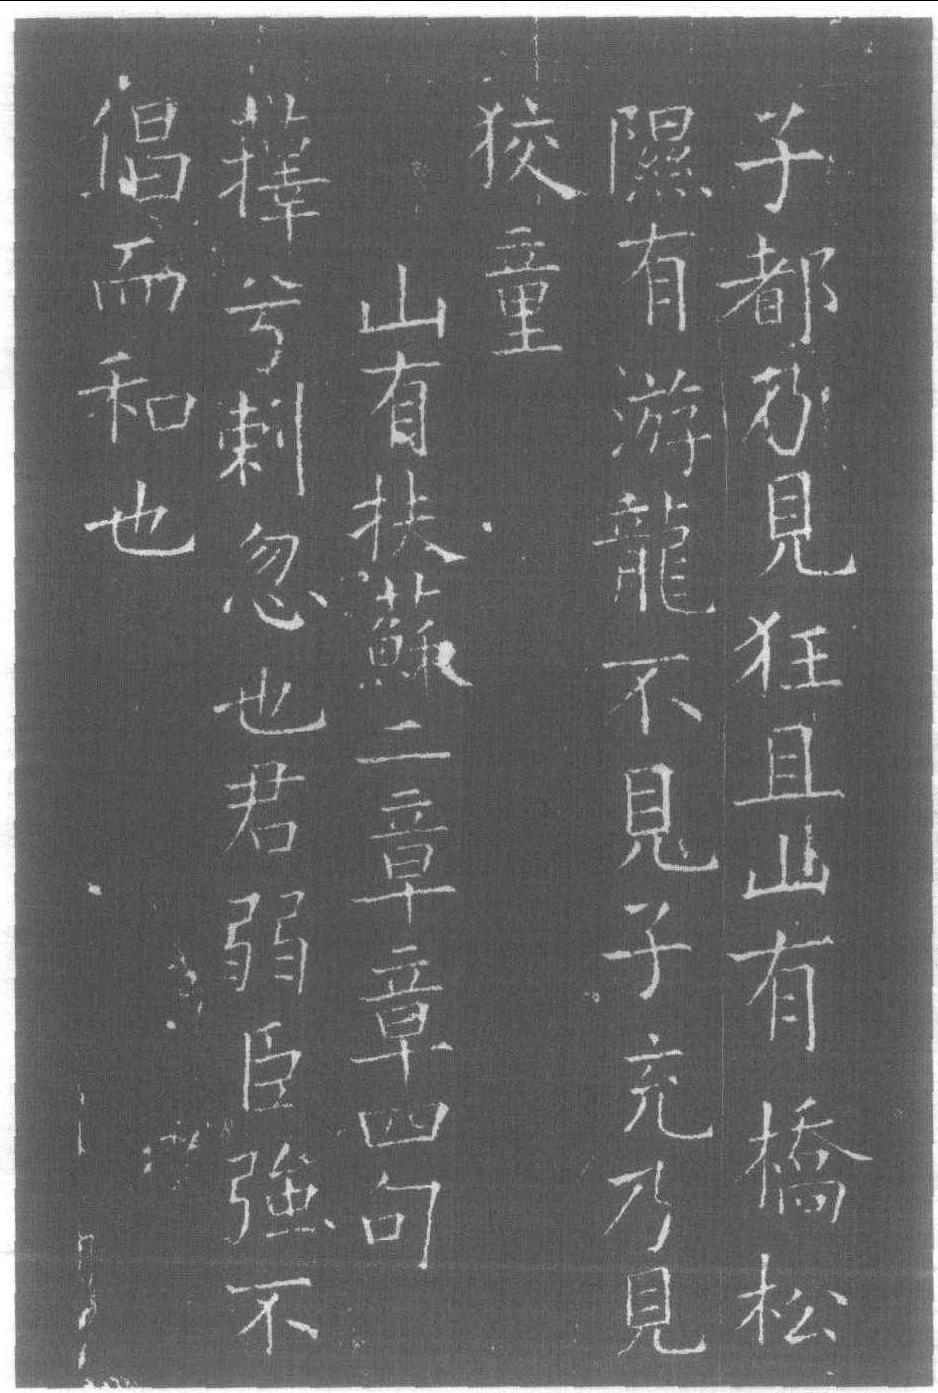 子都乃見狂且山有橋松
隰有游龍不見子充乃見
狡童
山有扶蘇二章章四句
蘀兮刺忽也君弱臣強不
倡而和也